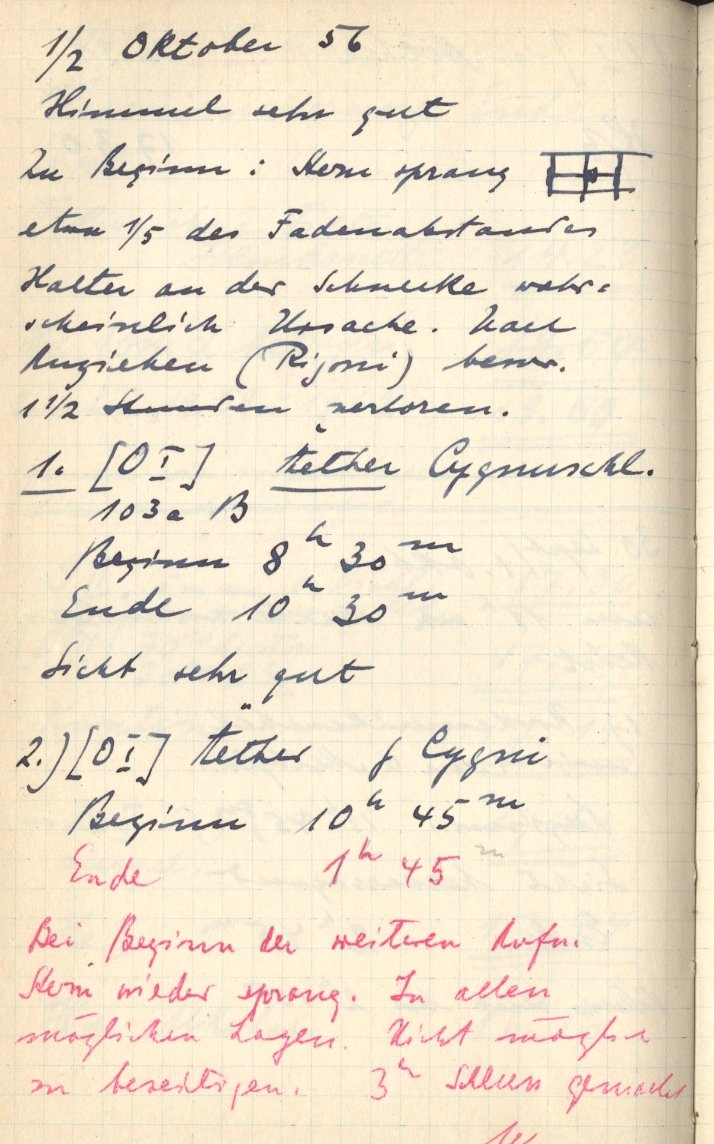 1/2 Oktober 56
Himmel sehr gut
Zu Beginn: Stern sprang
etwa 1/5 des Fadenabstandes
Halter an der Schnecke wahr-
scheinlich Ursache. Nach
Anziehen (Rigoni) besser.
1 1/2 Stunden verloren.
1. [OI] Aether Cygnuschl.
103a B
Beginn 8h 30m
Ende 10h 30m
Sicht sehr gut
2.) [OI] Aether γ Cygni
Beginn 10h 45m
Ende 1h 45m
Bei Beginn der weiteren Aufn.
Stern wieder sprang. In allen
möglichen Lagen. Nicht möglich
zu beseitigen. 3h Schluss gemacht